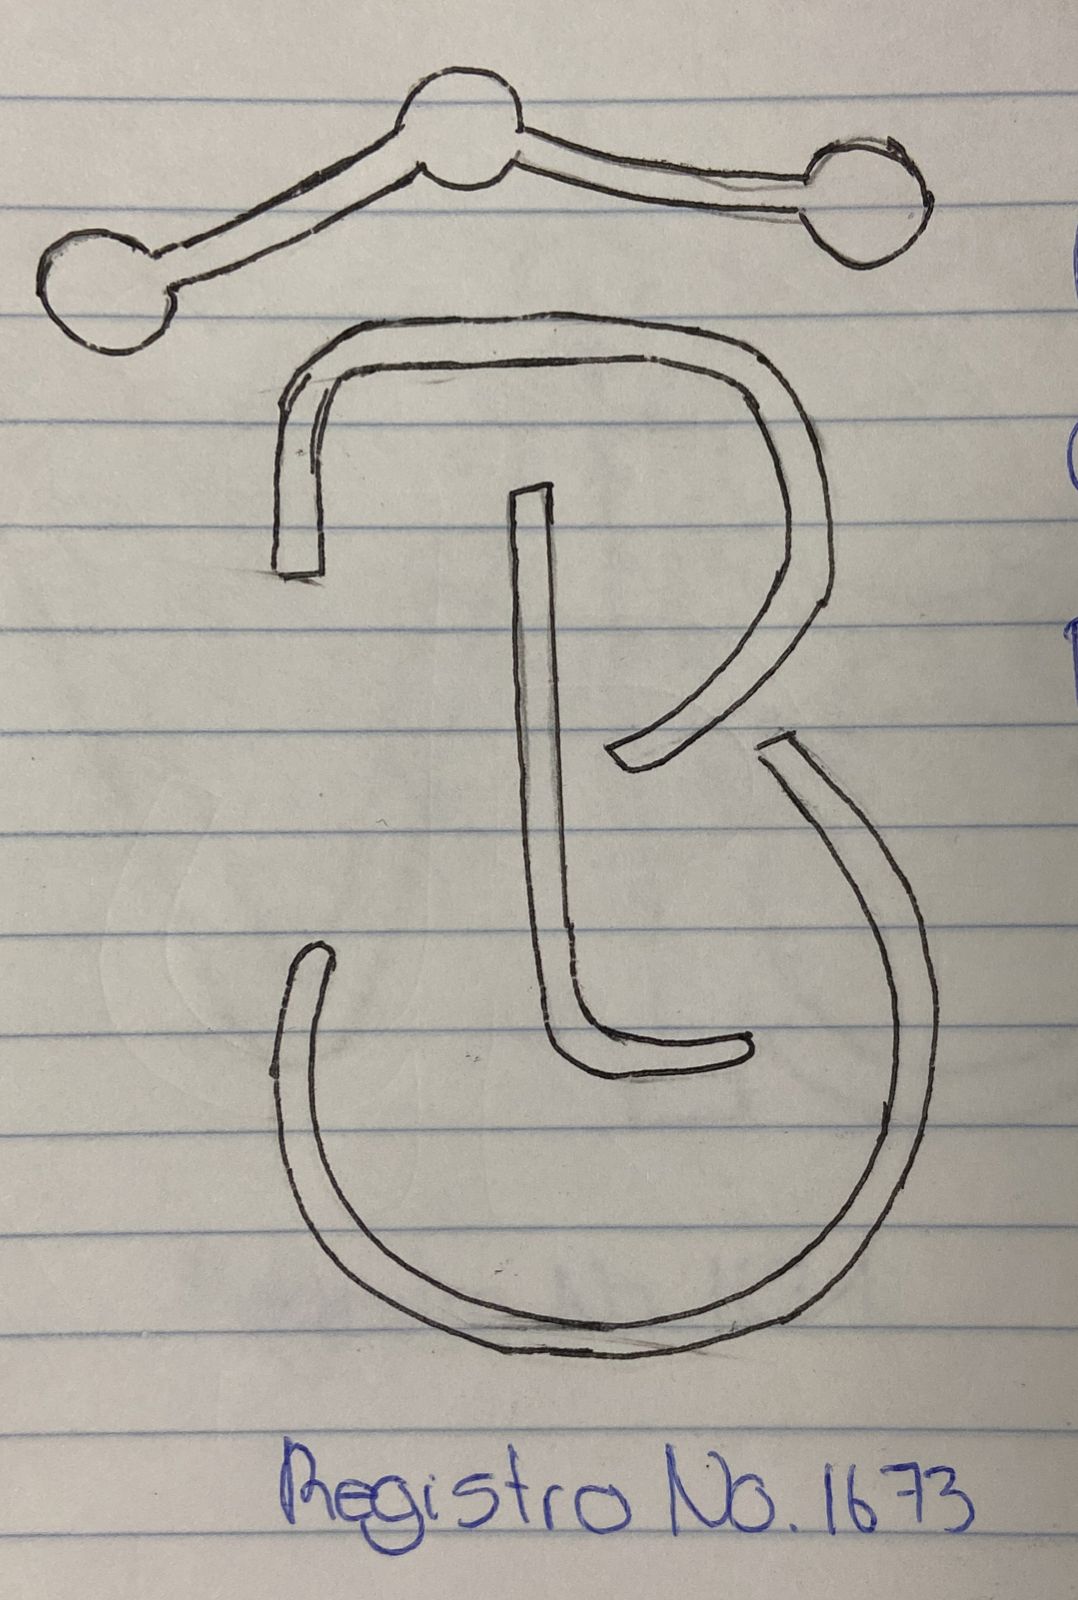 Registro No. 1673